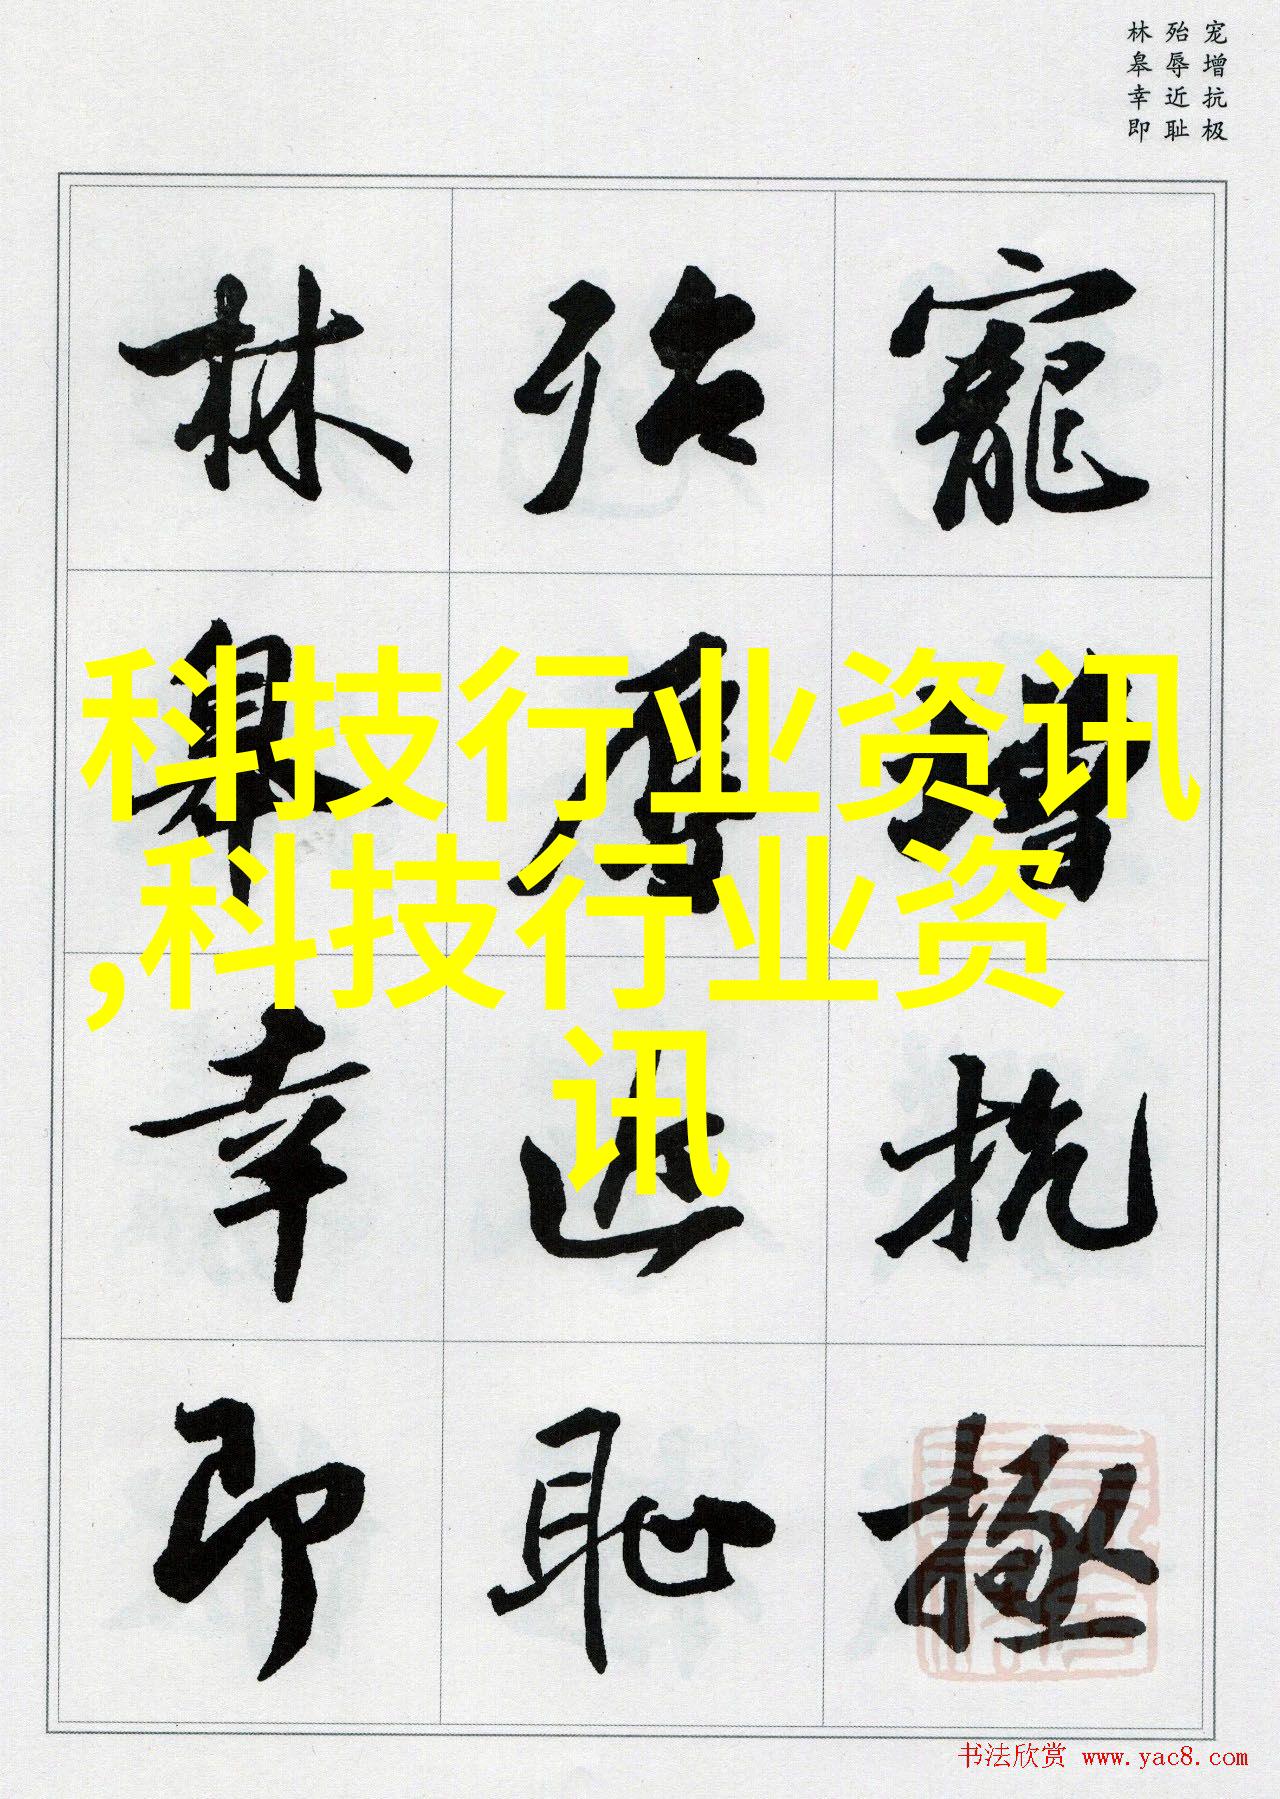 宠增抗极
殆辱近耻
林皋幸即
寵增抗極
殆辱近恥
林皋幸即
科技行业资讯
,科技行业资
讯
书法欣赏 www.yac8.com